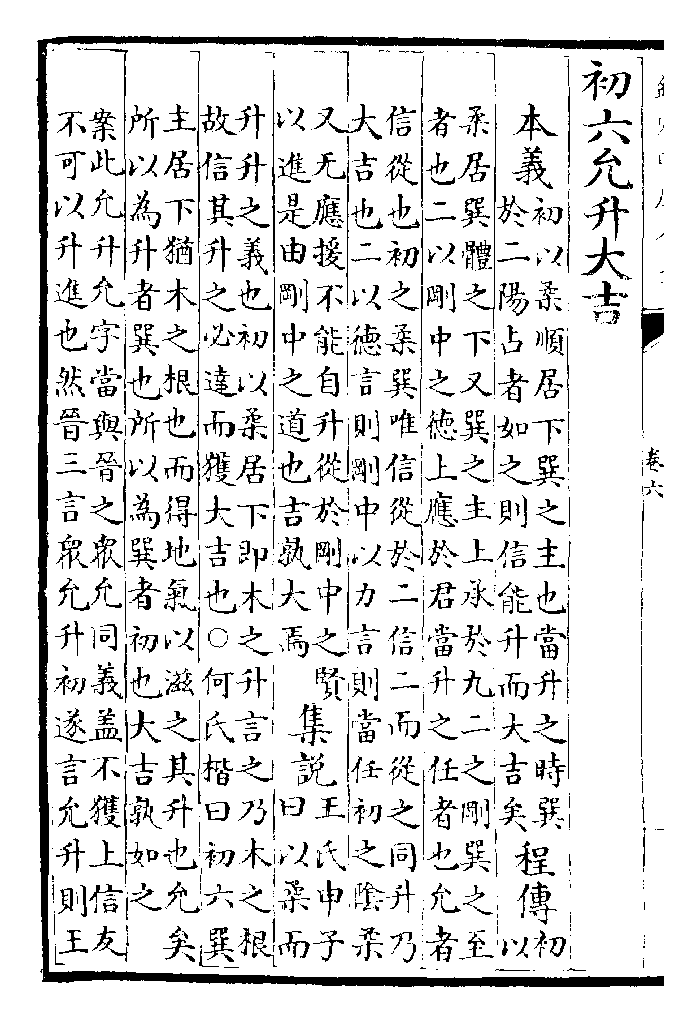 初六允升大吉
本義初以柔順居下巽之主也當升之時巽
於二陽占者如之則信能升而大吉矣程傳初
以
柔居巽體之下又巽之主上承於九二之剛巽之至
者也二以剛中之德上應於君當升之任者也允者
信從也初之柔巽唯信從於二信二而從之同升乃
大吉也二以德言則剛中以力言則當任初之陰柔
又无應援不能自升從於剛中之賢
以進是由剛中之道也吉孰大焉集說王氏申子
曰以柔而
升升之義也初以柔居下即木之升言之乃木之根
故信其升之必達而獲大吉也○何氏楷曰初六巽
主居下猶木之根也而得地氣以滋之其升也允矣
所以為升者巽也所以為巽者初也大吉孰如之
案此允升允字當與晉之衆允同義盖不獲上信友
不可以升進也然晉三言衆允升初遂言允升則王
卷六